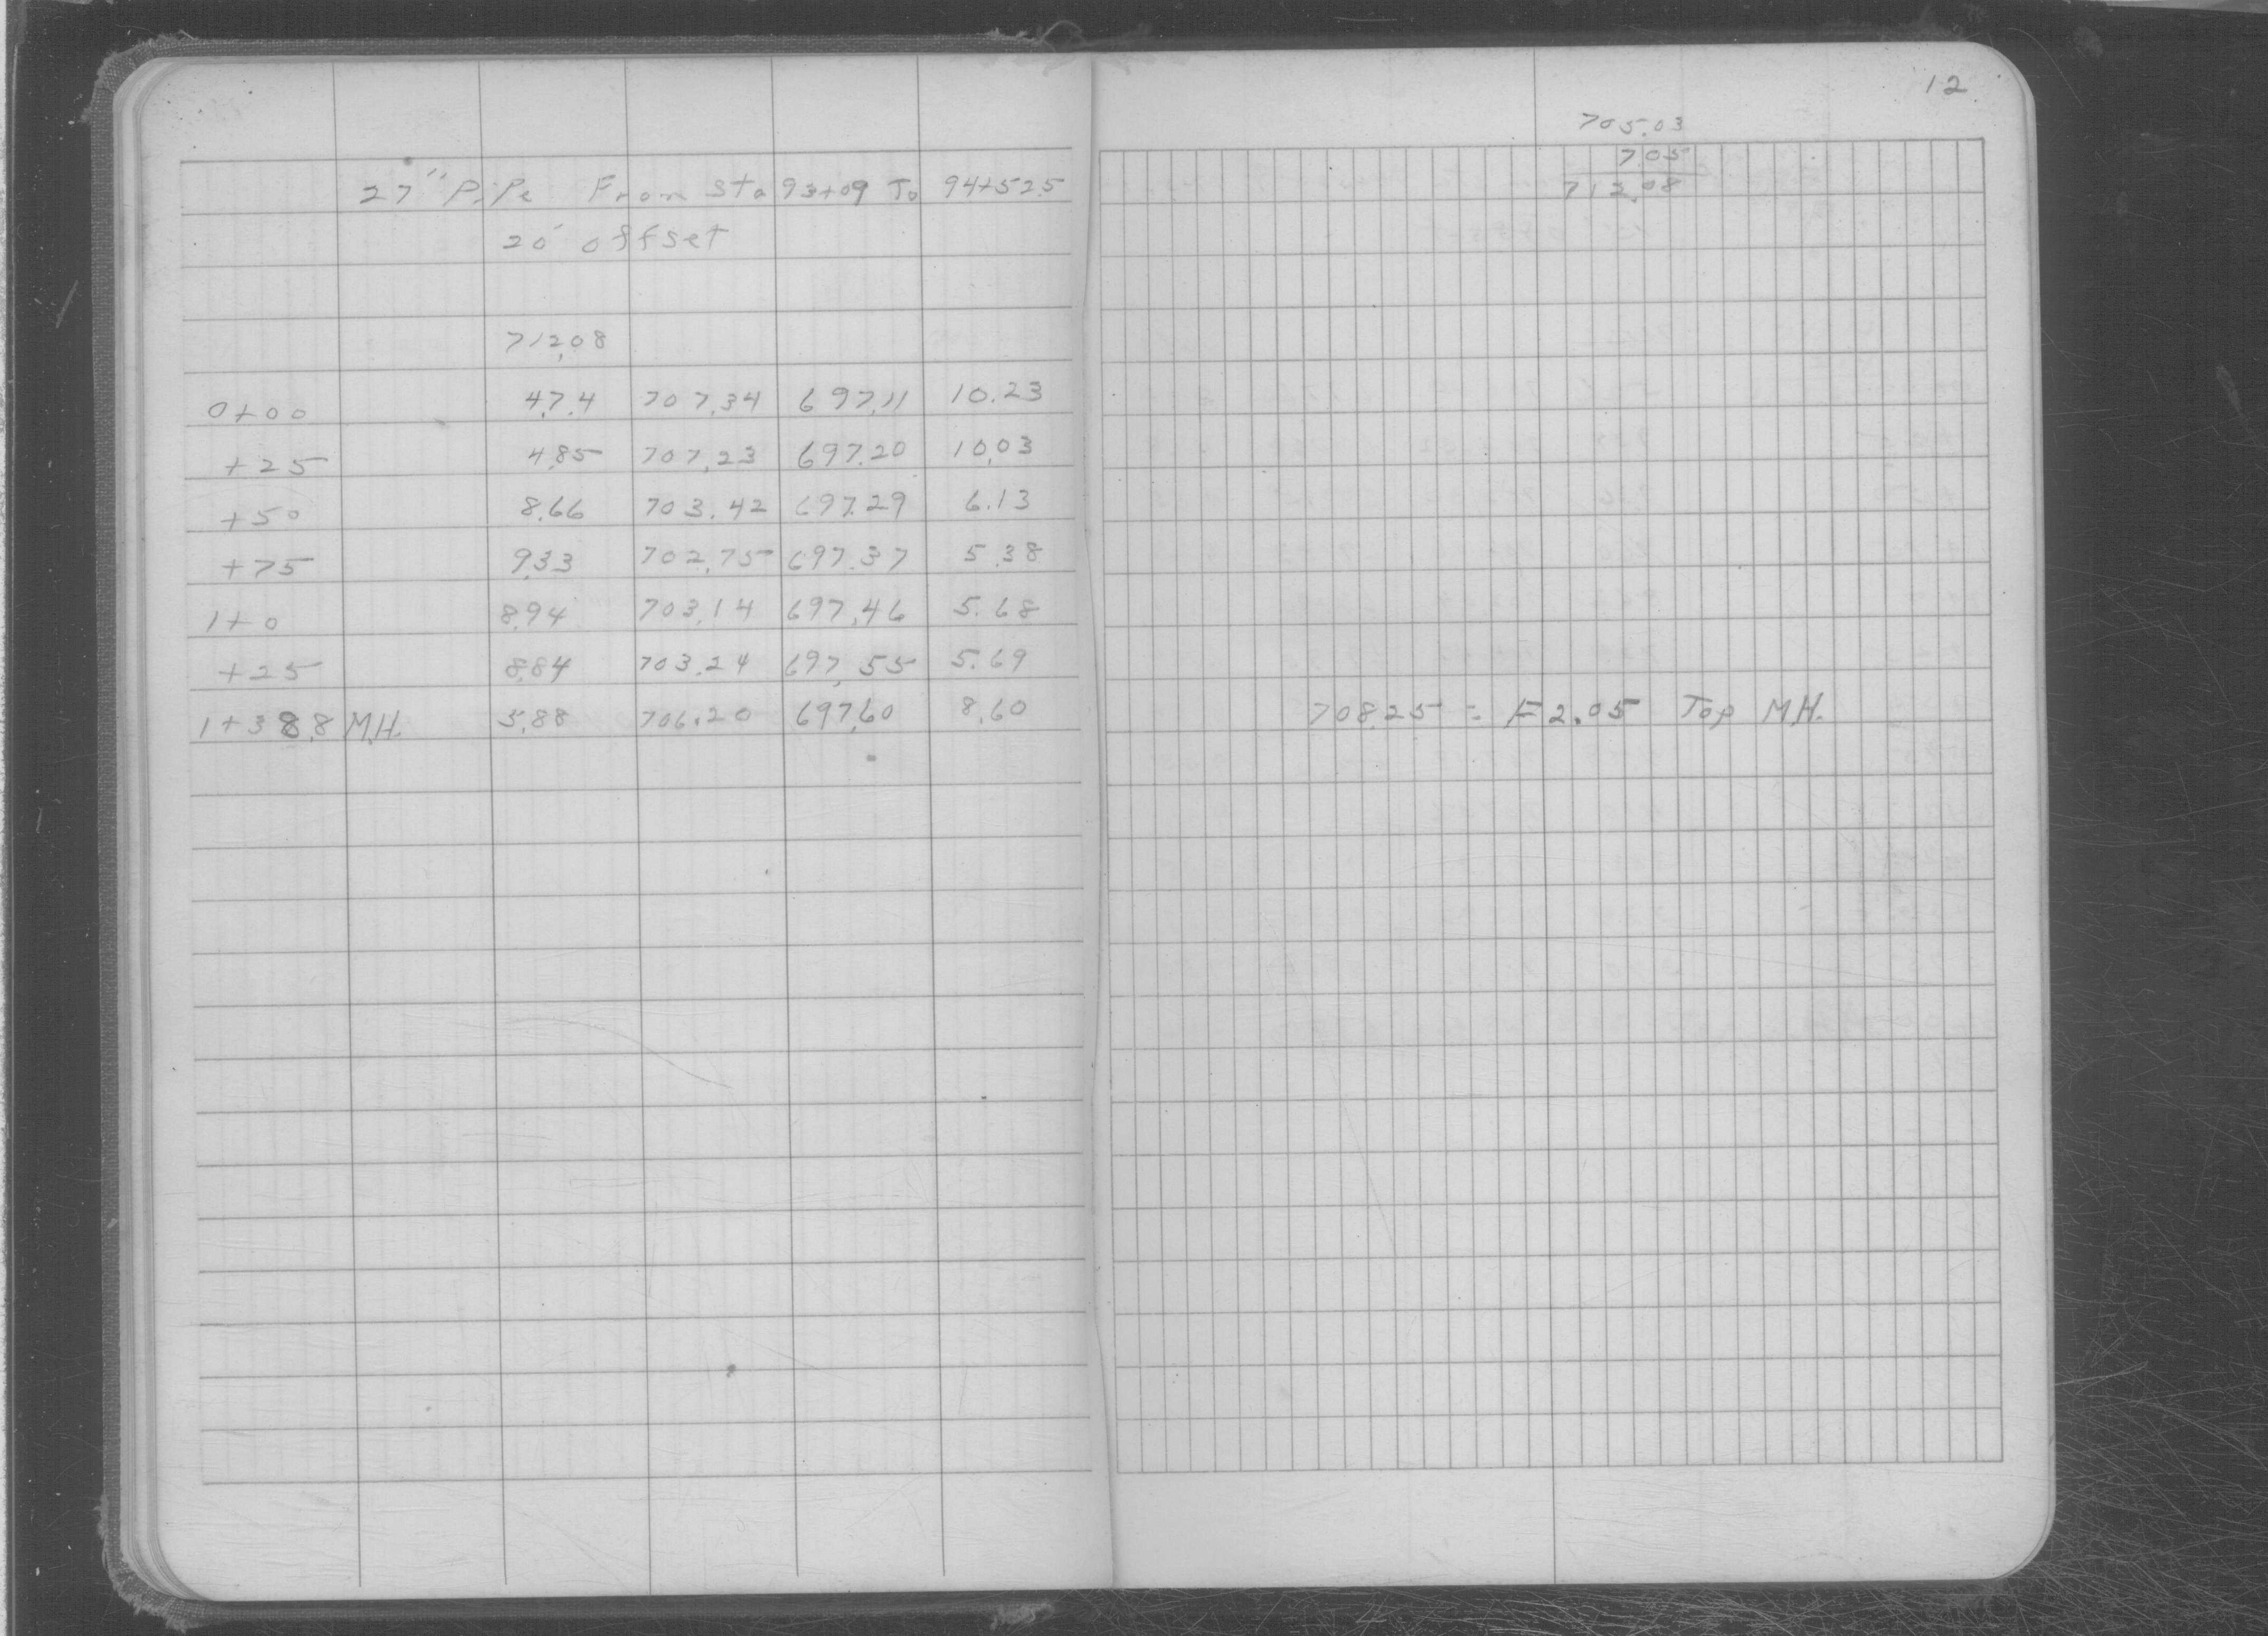 27" Pipe From Sta 93+09 To 94+52.5
20' offset
712.08
0+00 4.7.4 707.34 697.11 10.23
+25 4.85 707.23 697.20 10.03
+50 8.66 703.42 697.29 6.13
+75 9.33 702.75 697.37 5.38
1+0 8.94 703.14 697.46 5.68
+25 8.84 703.24 697.55 5.69
1+38.8 M.H. 5.88 706.20 697.60 8.60
12
705.03
7.05
712.08
708.25 = F 2.05 Top M.H.